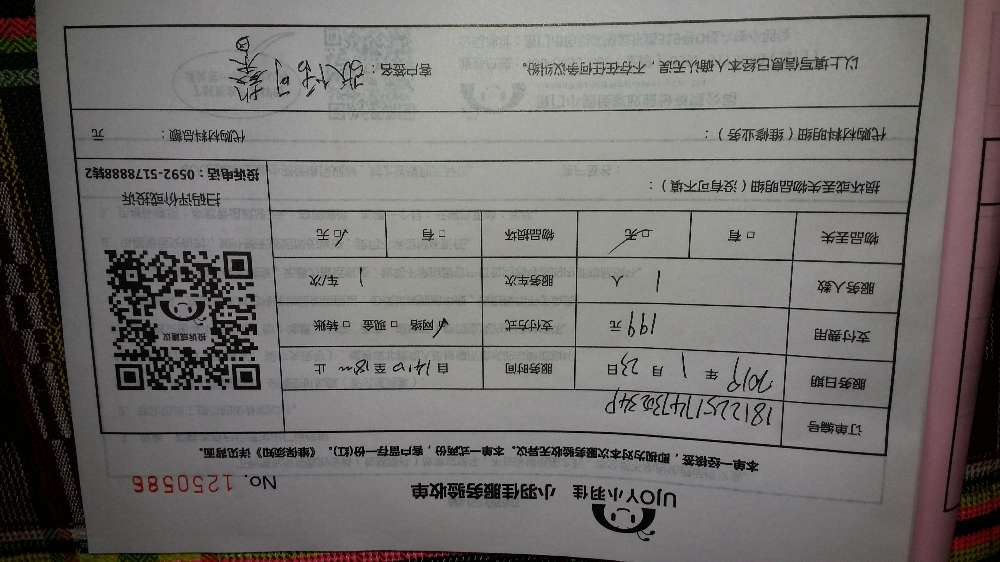 UJOY小羽佳 小羽佳服务验收单
No. 1250586
本单一经接签，即视为对本次服务验收无异议。本单一式两份，客户留存一份(红)。《维保须知》详见背面。
订单编号
服务日期 2019 年 1 月 23 日 服务时间 自 14:10 至 18:00 止
支付费用 199 元 支付方式 ☑网络 □现金 □转账
服务人数 1 人 服务车次 1 车/次
物品丢失 □有 ☑无 物品损坏 □有 ☑无
投诉或建议
扫码评价或投诉
投诉电话：0592-5178888转2
损坏或丢失物品明细（没有可不填）：
代购材料明细（维修业务）： 代购材料总额： 元
以上填写信息已经本人确认无误，不存在任何争议纠纷。 客户签名：